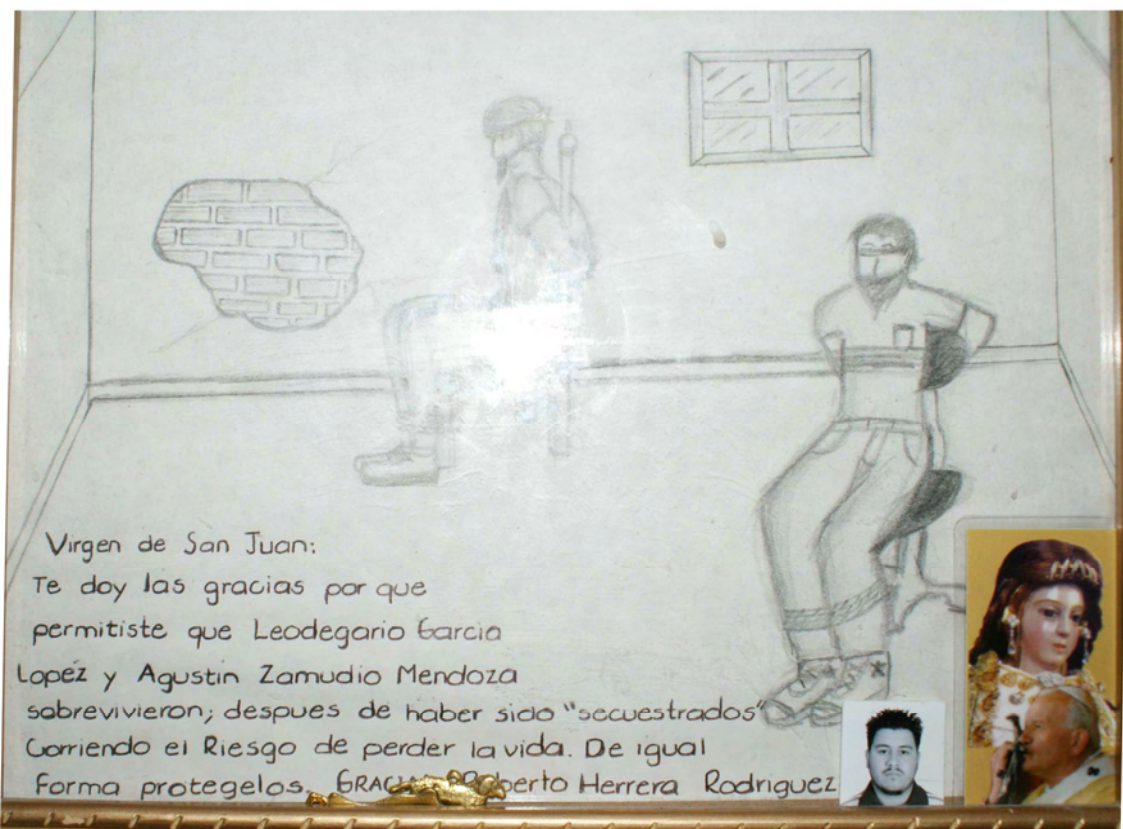 Virgen de San Juan:
Te doy las gracias por que
permitiste que Leodegario Garcia
Lopéz y Agustin Zamudio Mendoza
sobrevivieron; despues de haber sido "secuestrados"
Corriendo el Riesgo de perder la vida. De igual
Forma protegelos. Herrera Rodriguez